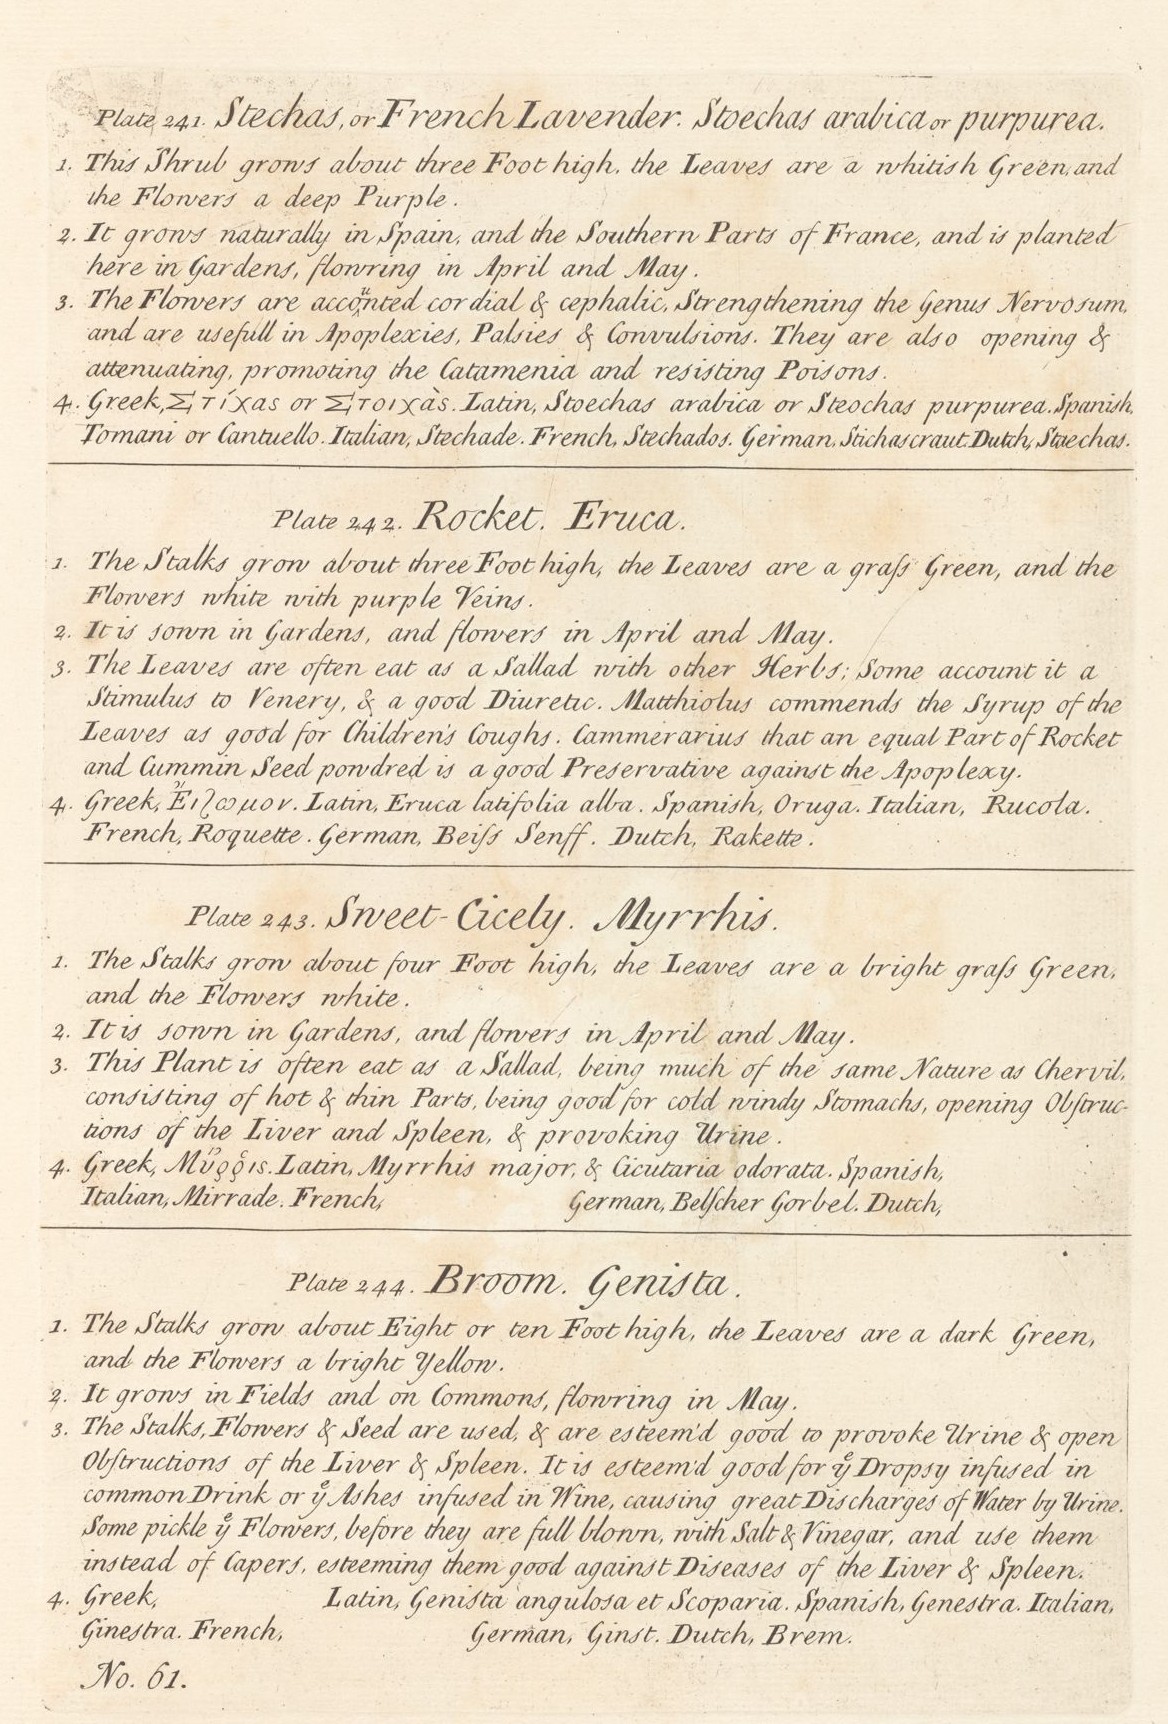 Plate 241. Stechas, or French Lavender. Stoechas arabica or purpurea.
1. This Shrub grows about three Foot high, the Leaves are a whitish Green, and
the Flowers a deep Purple.
2. It grows naturally in Spain, and the Southern Parts of France, and is planted
here in Gardens, flowring in April and May.
3. The Flowers are accoͧnted cordial & cephalic, Strengthening the Genus Nervosum,
and are usefull in Apoplexies, Palsies & Convulsions. They are also opening &
attenuating, promoting the Catamenia and resisting Poisons.
4. Greek, Στίχας or Στοιχὰς. Latin, Stoechas arabica or Steochas purpurea. Spanish,
Tomani or Cantuello. Italian, Stechade. French, Stechados. German, Stichascraut. Dutch, Staechas.
Plate 242. Rocket. Eruca.
1. The Stalks grow about three Foot high, the Leaves are a graſs Green, and the
Flowers white with purple Veins.
2. It is sown in Gardens, and flowers in April and May.
3. The Leaves are often eat as a Sallad with other Herbs; Some account it a
Stimulus to Venery, & a good Diuretic. Matthiolus commends the Syrup of the
Leaves as good for Children's Coughs. Cammerarius that an equal Part of Rocket
and Cummin Seed powdred is a good Preservative against the Apoplexy.
4. Greek, Ἔιζωμον. Latin, Eruca latifolia alba. Spanish, Oruga. Italian, Rucola.
French, Roquette. German, Beiſs Senff. Dutch, Rakette.
Plate 243. Sweet-Cicely. Myrrhis.
1. The Stalks grow about four Foot high, the Leaves are a bright graſs Green,
and the Flowers white.
2. It is sown in Gardens, and flowers in April and May.
3. This Plant is often eat as a Sallad, being much of the same Nature as Chervil,
consisting of hot & thin Parts, being good for cold windy Stomachs, opening Obſtruc-
tions of the Liver and Spleen, & provoking Urine.
4. Greek, Μύῤῥις. Latin, Myrrhis major, & Cicutaria odorata. Spanish,
Italian, Mirrade. French, German, Belſcher Gorbel. Dutch,
Plate 244. Broom. Genista.
1. The Stalks grow about Eight or ten Foot high, the Leaves are a dark Green,
and the Flowers a bright Yellow.
2. It grows in Fields and on Commons, flowring in May.
3. The Stalks, Flowers & Seed are used, & are esteem'd good to provoke Urine & open
Obſtructions of the Liver & Spleen. It is esteem'd good for yͤ Dropsy infused in
common Drink or yͤ Ashes infused in Wine, causing great Discharges of Water by Urine.
Some pickle yͤ Flowers, before they are full blown, with Salt & Vinegar, and use them
instead of Capers, esteeming them good against Diseases of the Liver & Spleen.
4. Greek, Latin, Genista angulosa et Scoparia. Spanish, Genestra. Italian,
Ginestra. French, German, Ginst. Dutch, Brem.
No. 61.